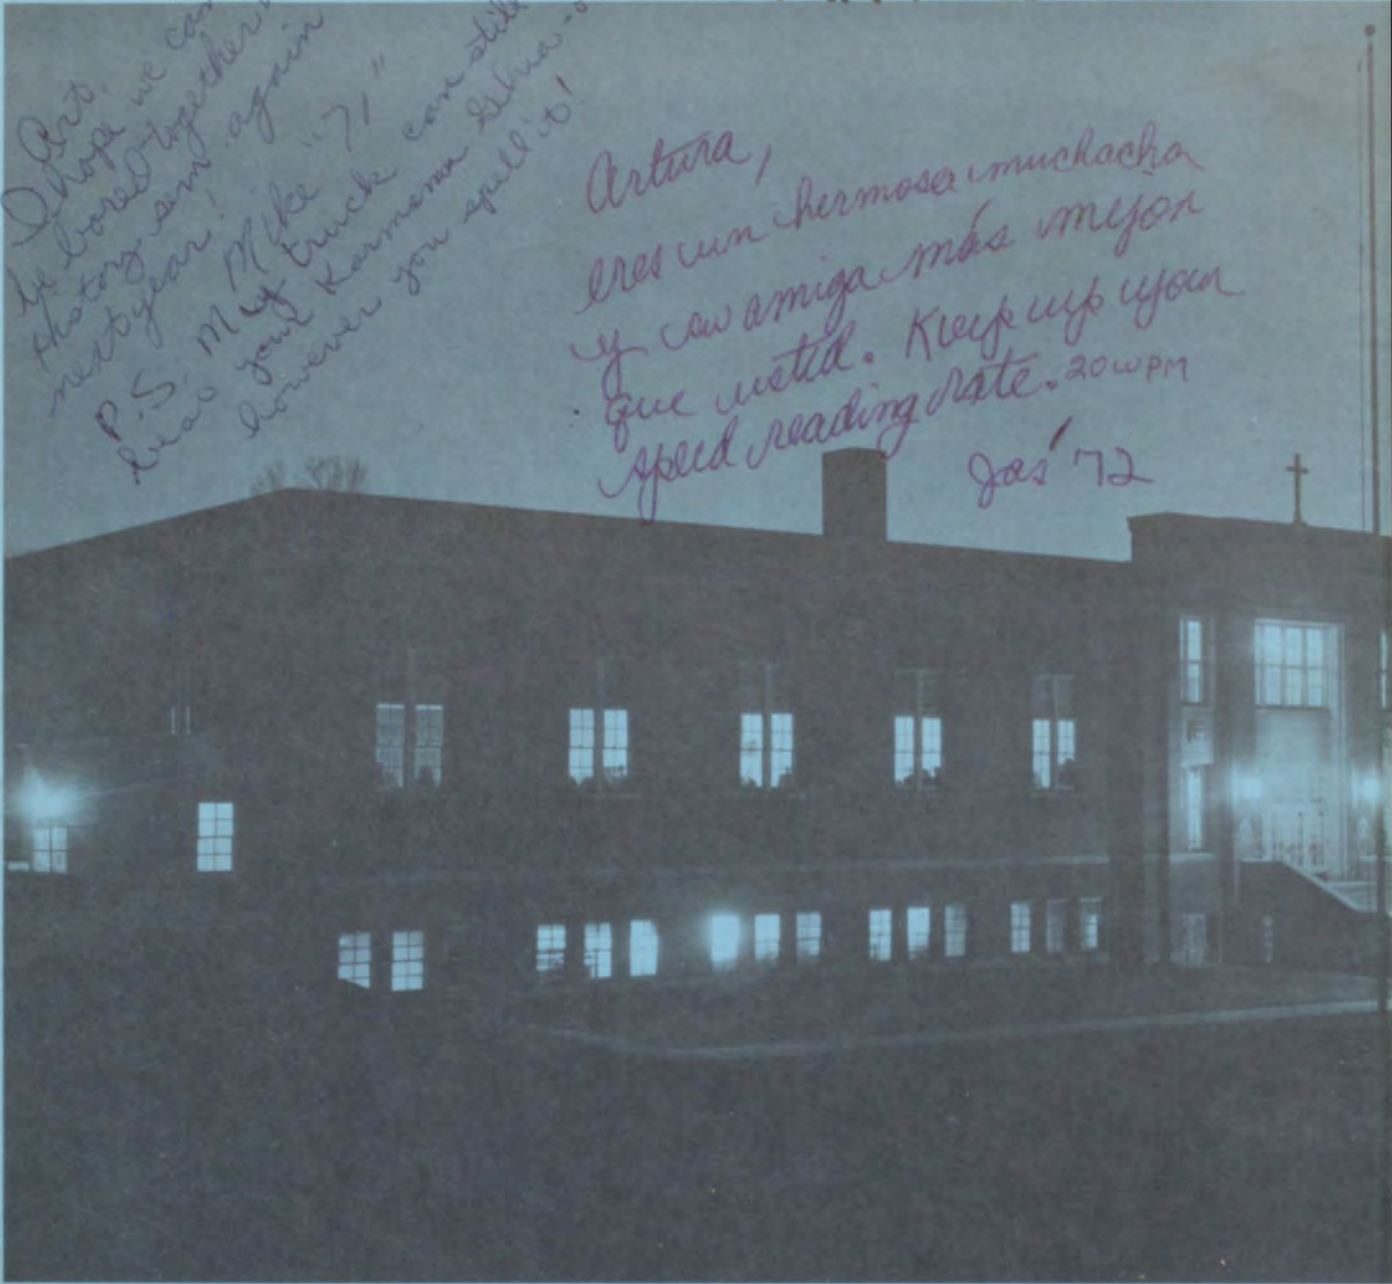 Art,
I hope we can
be bored together
history sem again
next year!
Mike "71"
P.S. My truck can still
your Karmann Ghia -
however you spell it!
Artura,
eres un hermosa muchacha
y amiga más mejor
que usted. Keep up your
speed reading rate. 20 WPM
'72